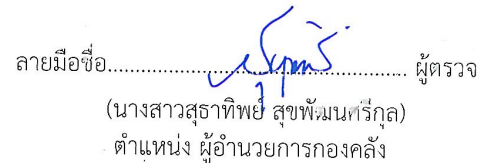 ลายมือชื่อ........................................................ ผู้ตรวจ
(นางสาวสุธาทิพย์ สุขพัฒนศรีกุล)
ตำแหน่ง ผู้อำนวยการกองคลัง